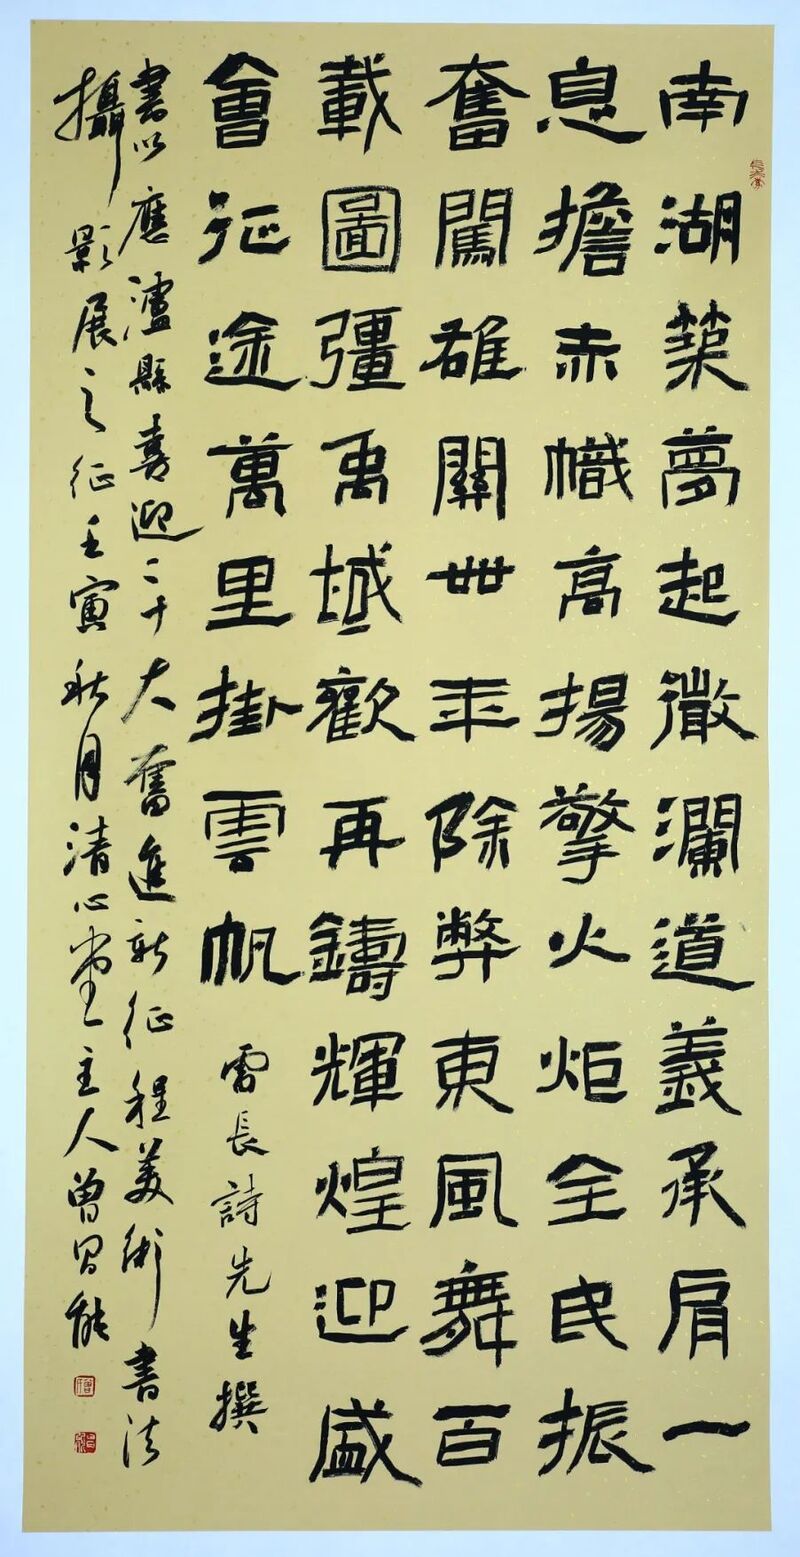 南湖築夢起微瀾道義承肩一
息擔赤幟高揚擎火炬全民振
奮闖雄關卌年除弊東風舞百
載圖彊禹域歡再鑄輝煌迎盛
會征途萬里掛雲帆
雷長詩先生撰
書以應瀘縣喜迎二十大奮進新征程美術書法
攝影展之征壬寅秋月清心堂主人曾